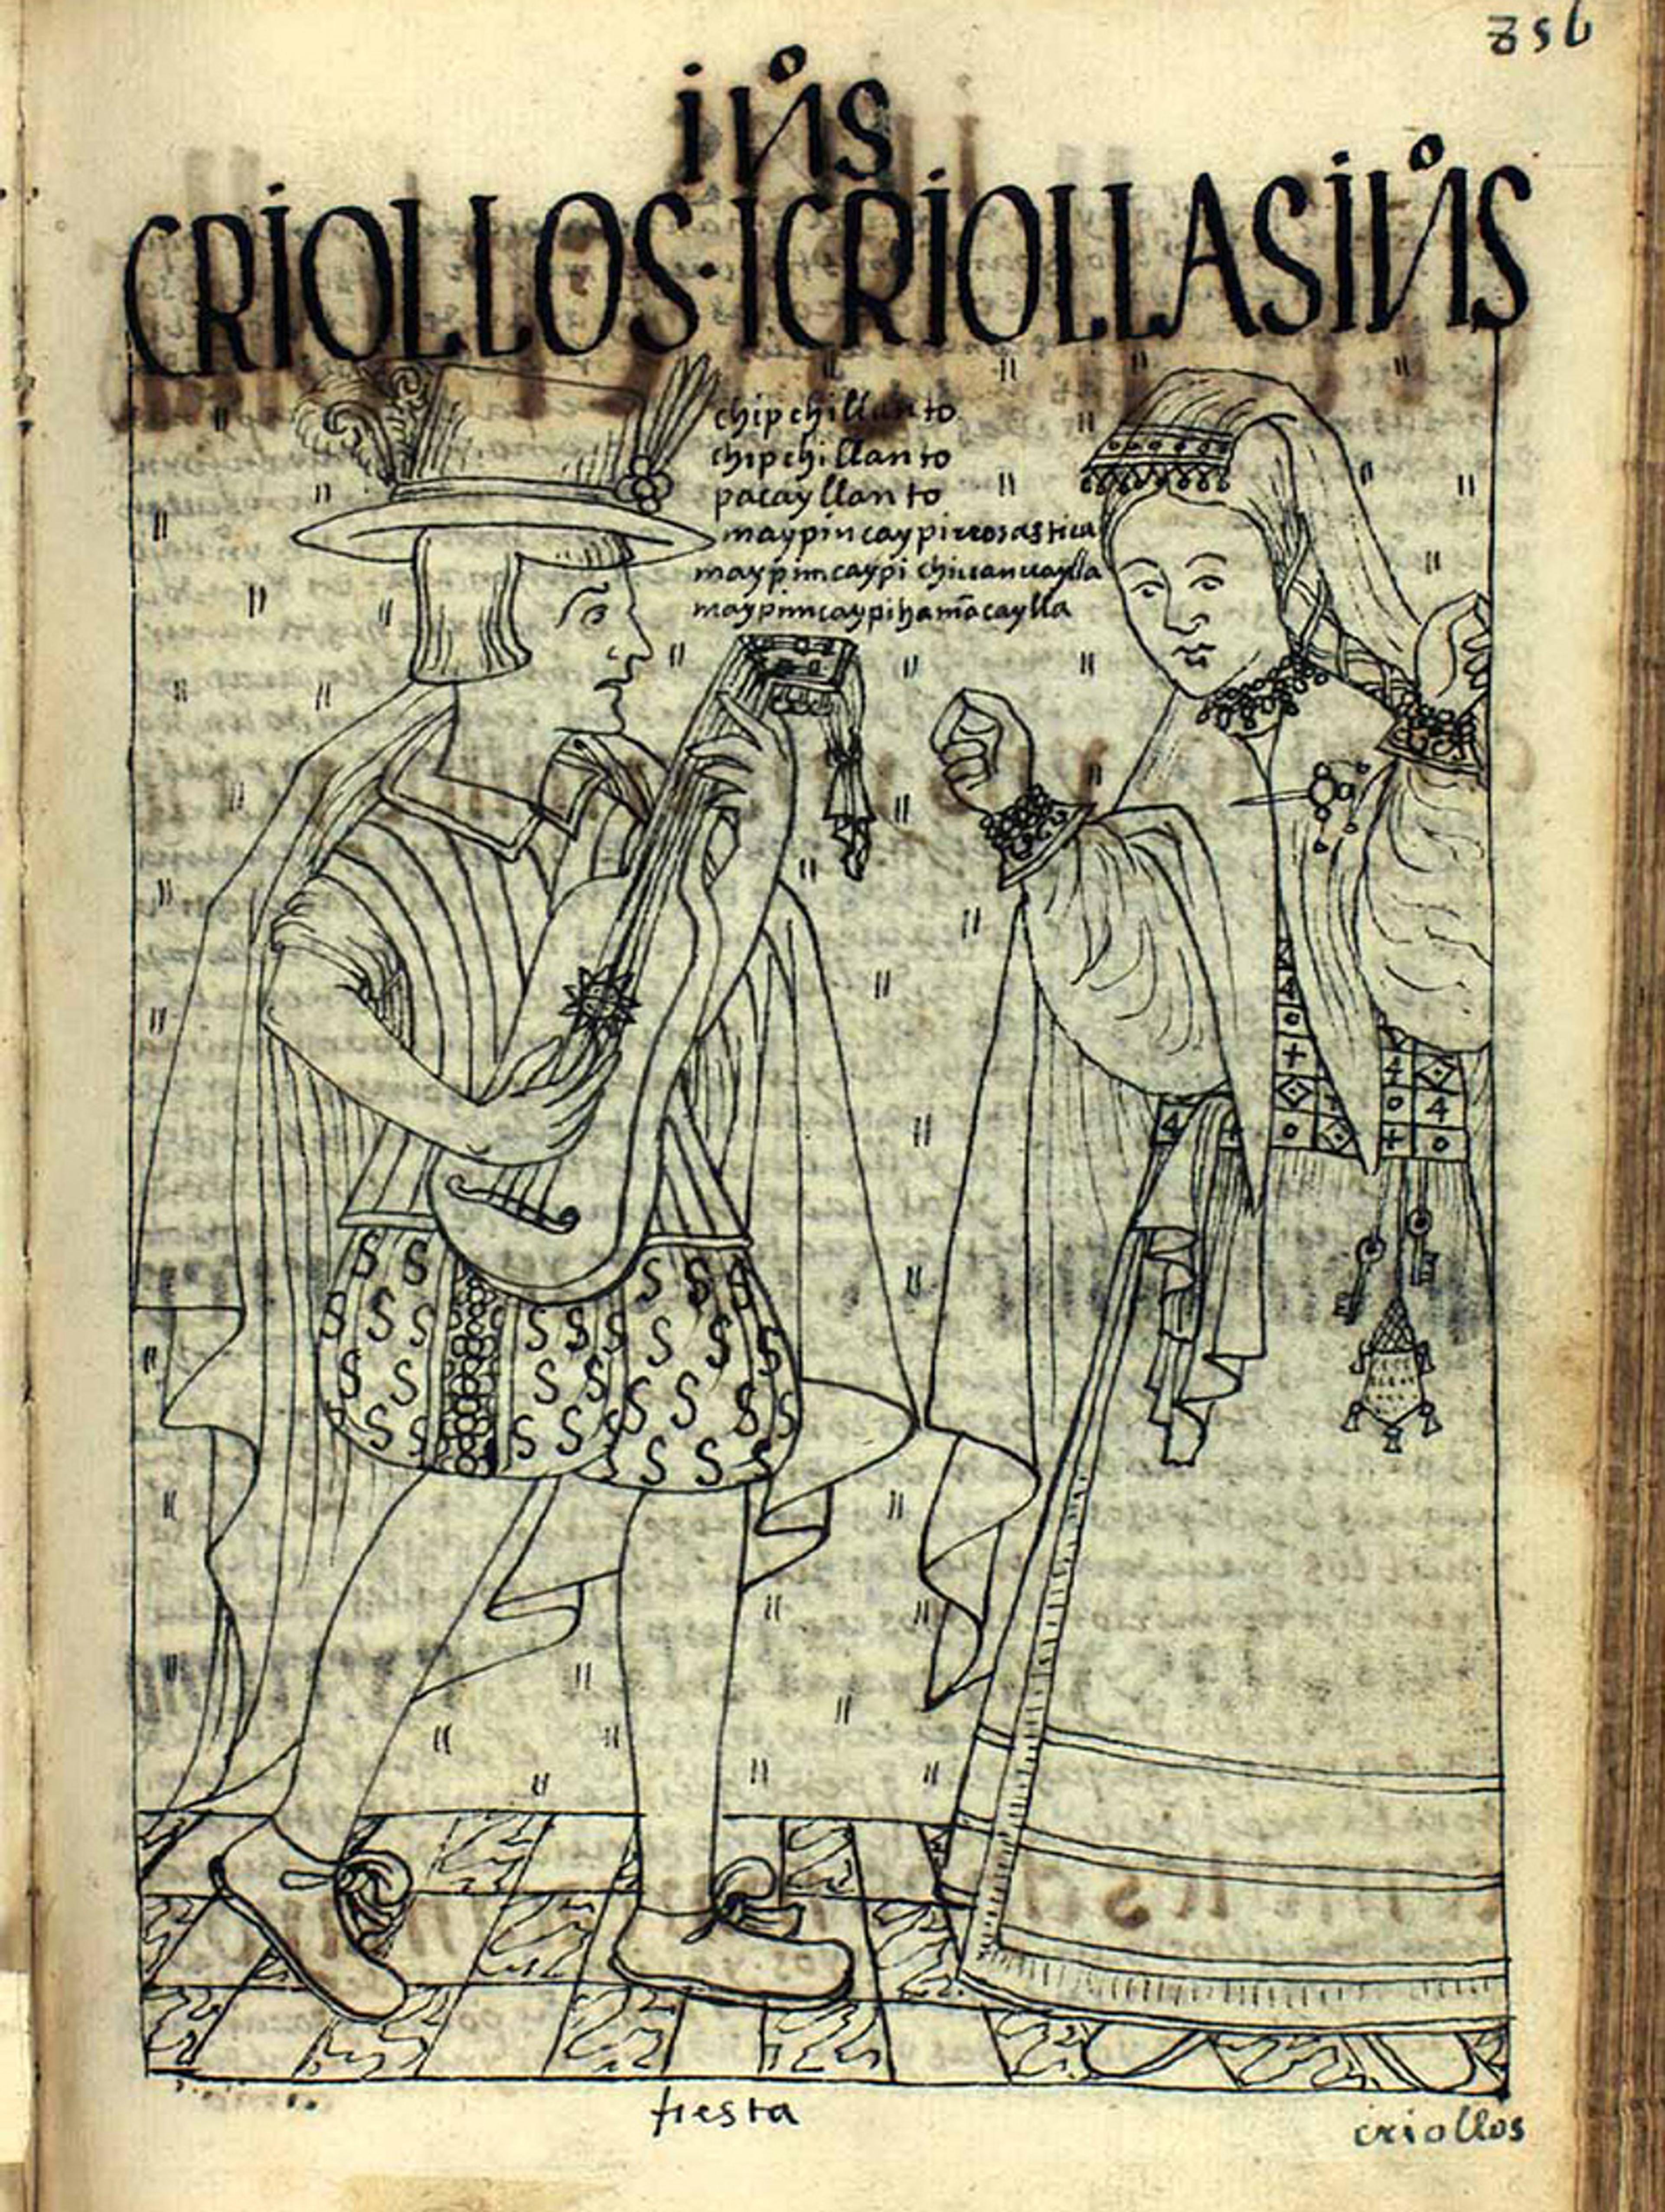 856
ın̊s
CRIOLLOS·ICRIOLLASIN̊S
chipchillanto
chipchillanto
pacayllanto
maypincaypirrosasticca
maypimcaypi chiuanuaylla
maypimcaypi hamācaylla
fiesta
criollos